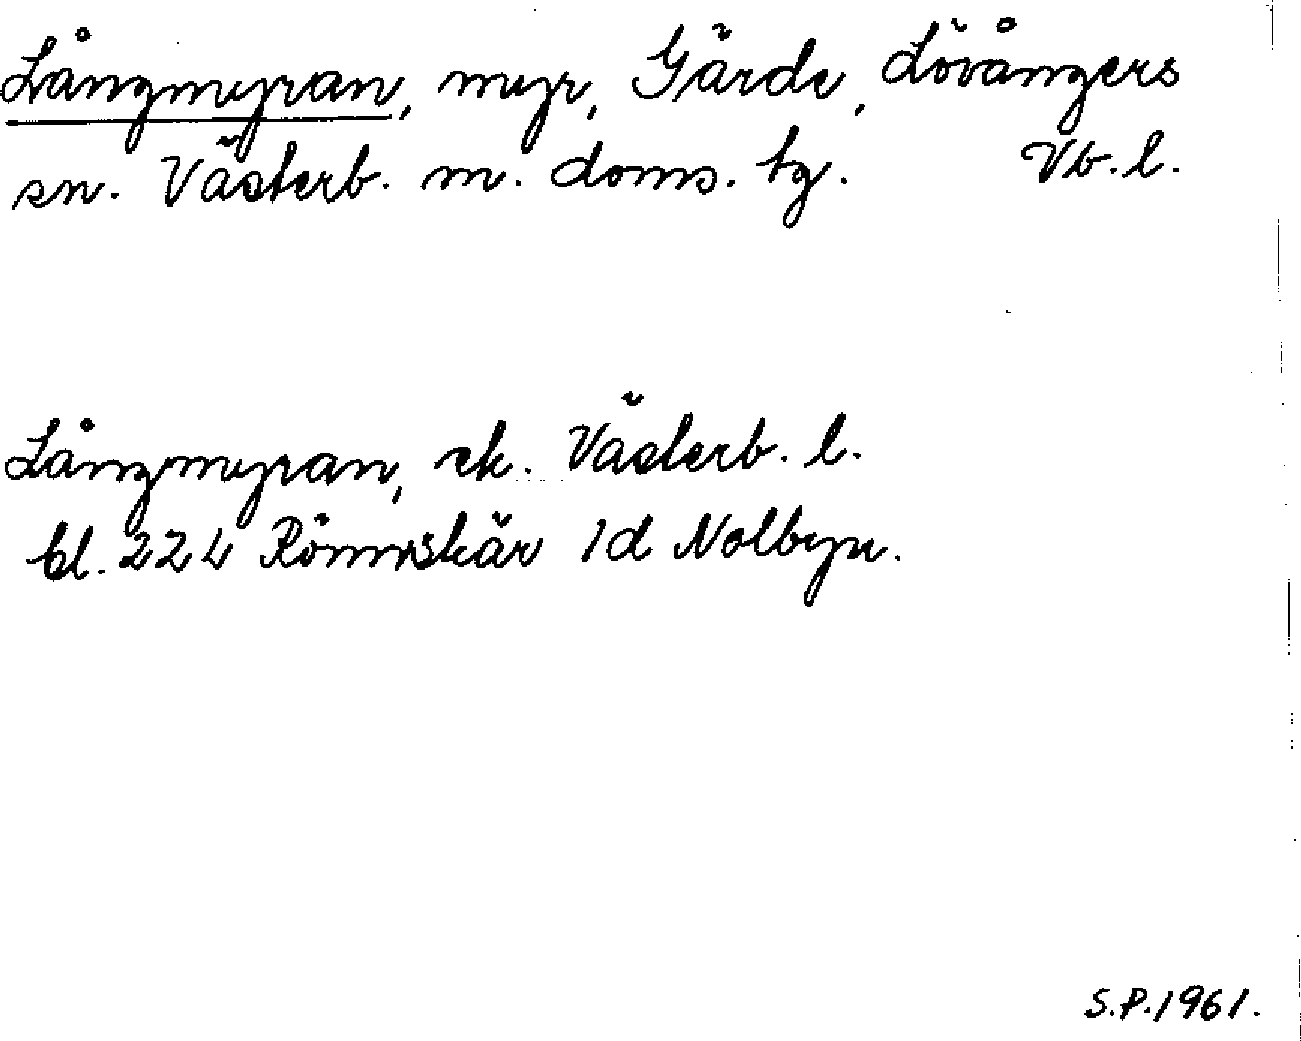 Långmyran, myr, Gärde, Lövångers
sn. Västerb. m. doms. tg. Vb. l.
Långmyran, ek. Västerb. l.
bl. 224 Rönnskär 1d Nolbyn.
S.P. 1961.